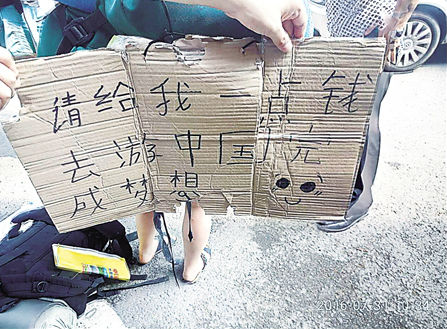 请给我一点钱
去游中国完
成梦想